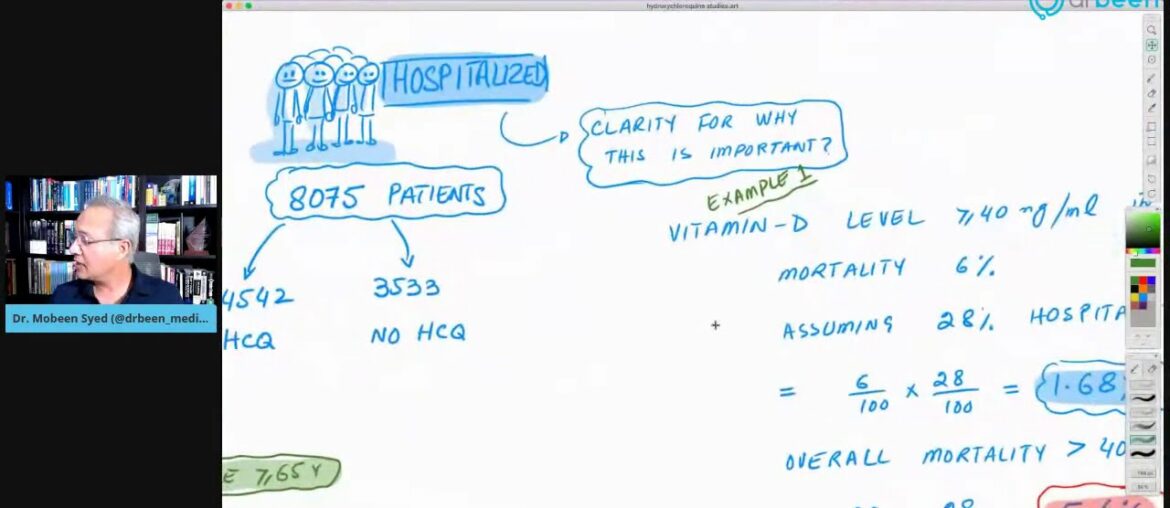 hydroxychloroquine studies.art
drbeen
HOSPITALIZED
CLARITY FOR WHY
THIS IS IMPORTANT?
8075 PATIENTS
EXAMPLE 1
VITAMIN-D LEVEL ≥40 ng/ml
MORTALITY 6%
4542
3533
HCQ
NO HCQ
ASSUMING 28% HOSPITA
= 6/100 × 28/100 = 1.68%
OVERALL MORTALITY > 40
E ≥65Y
Dr. Mobeen Syed (@drbeen_medi...